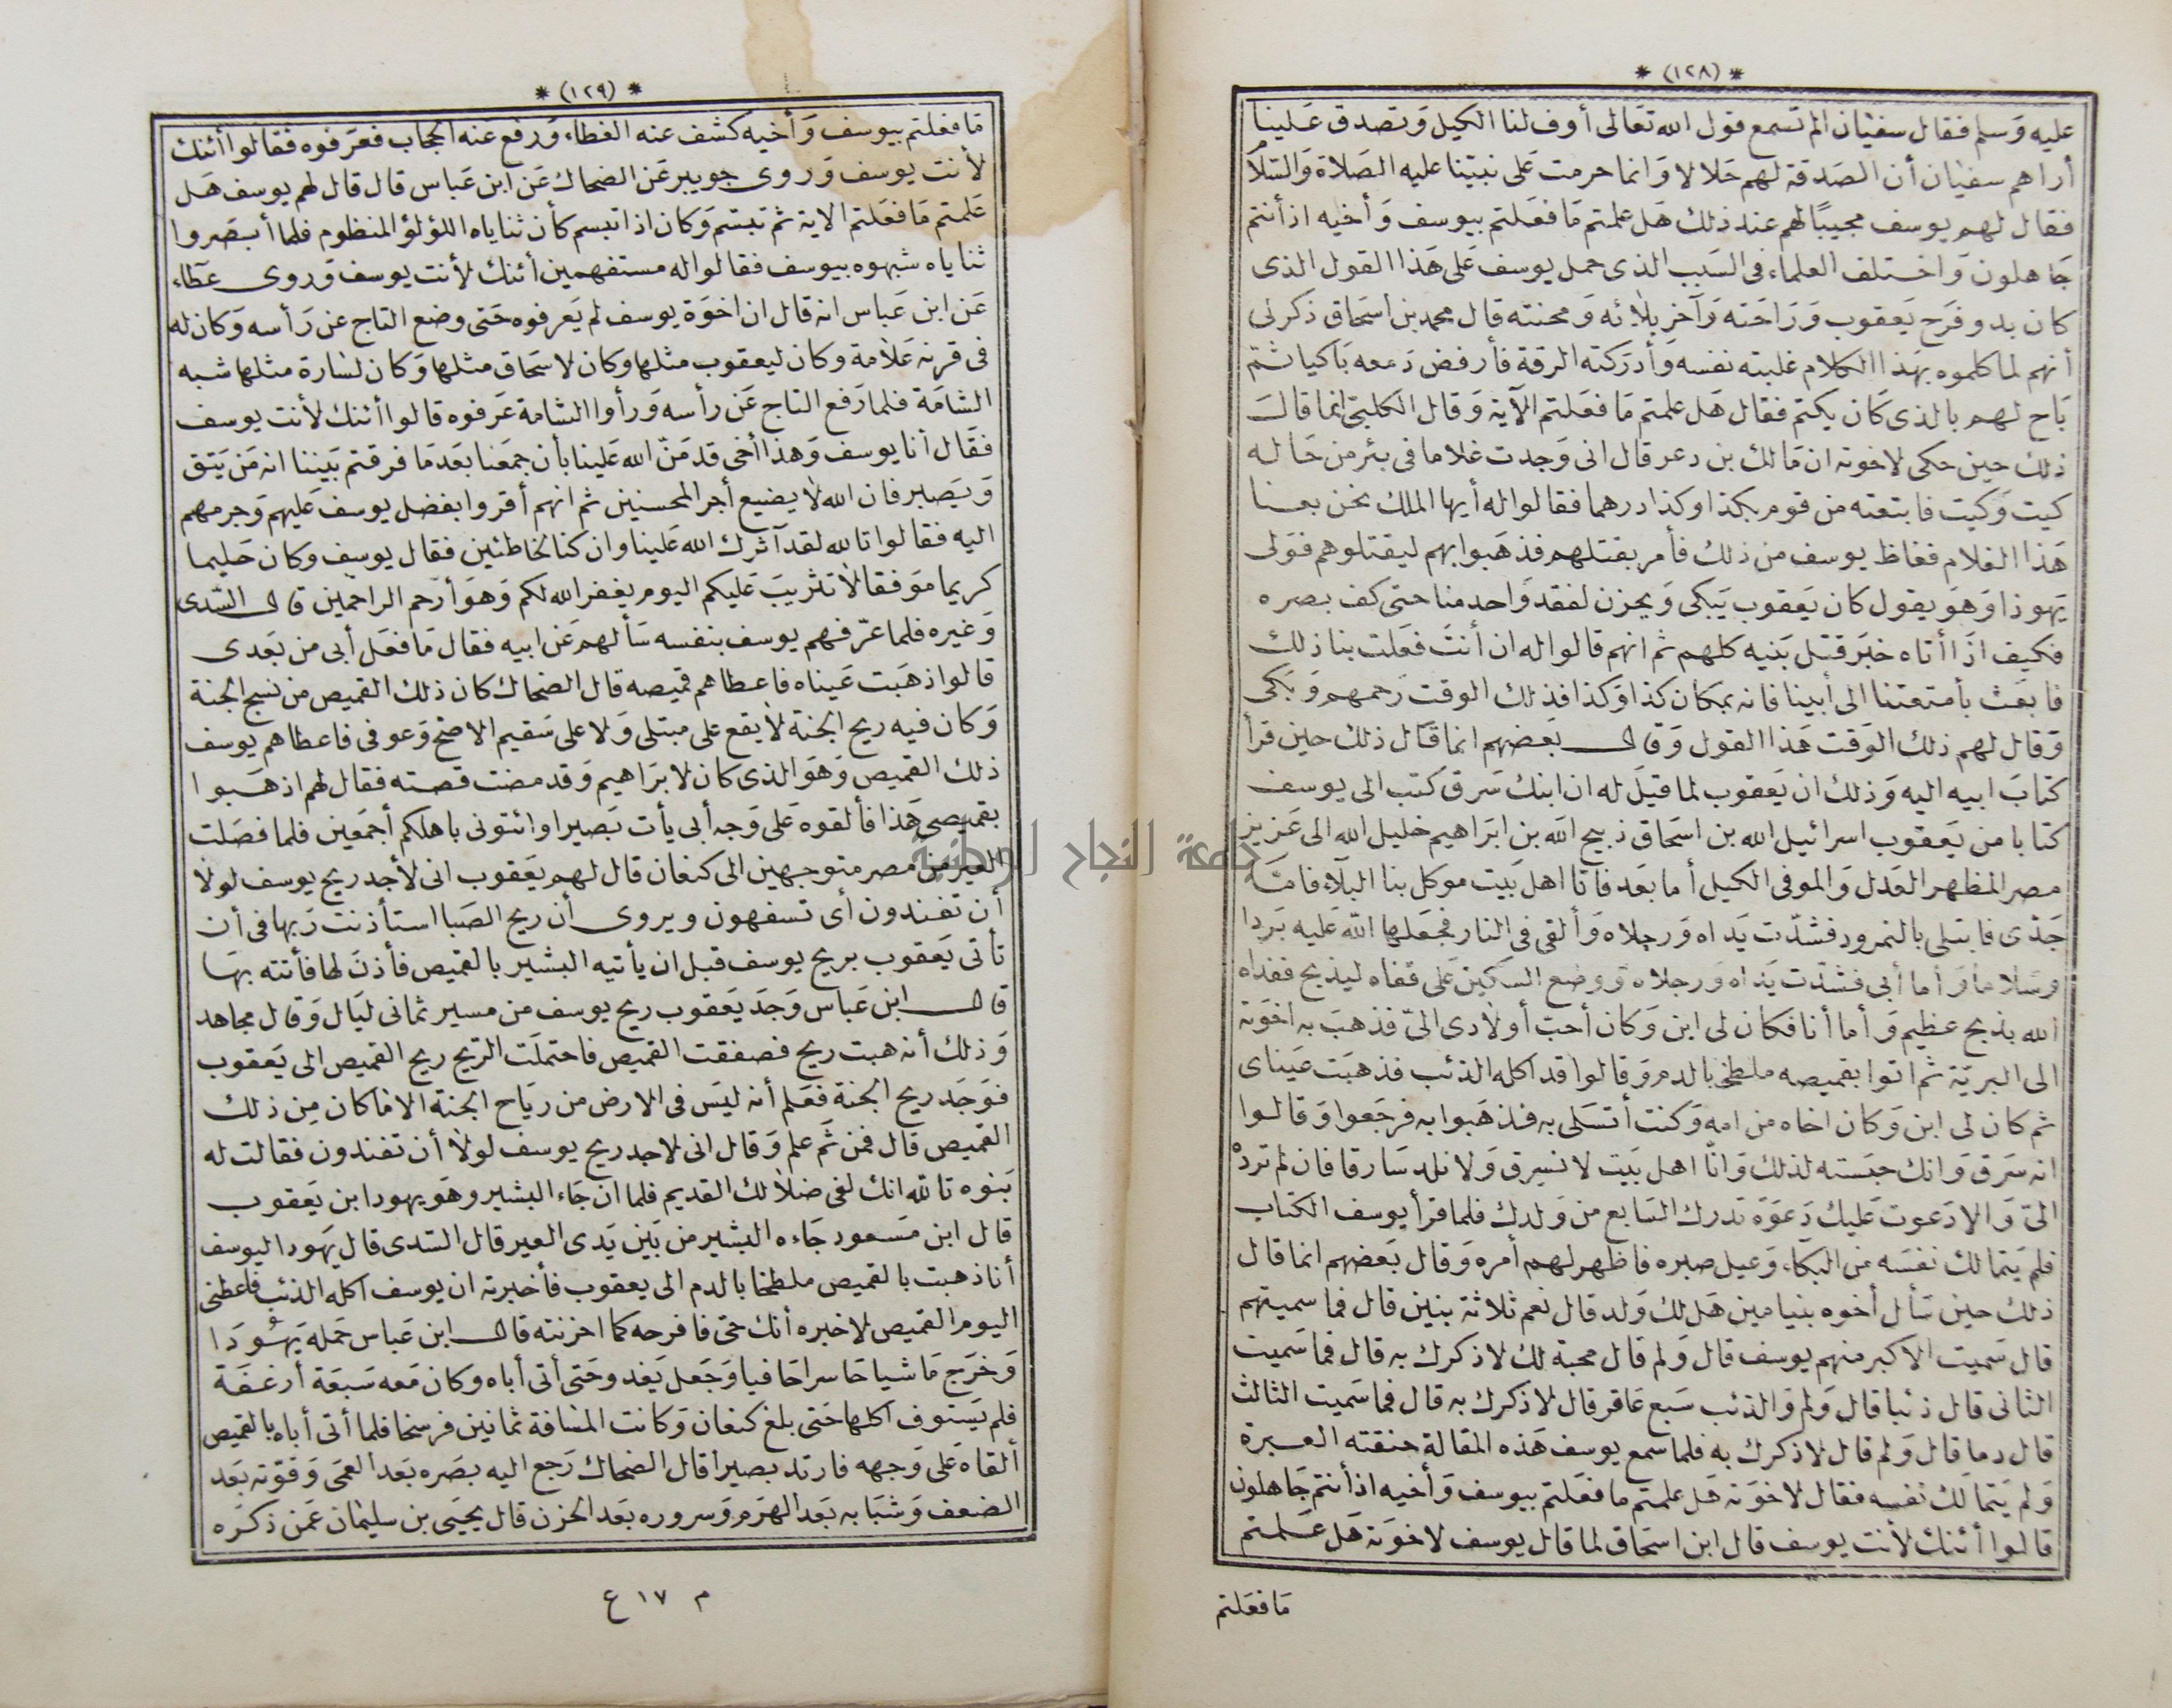 * (١٢٨) *
عليه وَسلم فقال سفيٰان الم تسمع قول الله تعَالى أوف لنا الكيل وَتصدق عَلينا
أراهم سفيٰان أن الصَدقة لهم حَلالا وَانما حرمت عَلى نبيّنا عليه الصَلاة وَالسَلا
فقال لهم يوسف مجيبًا لهم عند ذلك هَل علمتم مَا فعَلتم بيوسف وَأخيه اذ أنتم
جَاهلون وَاختلف العلماء فى السَبب الذى حمل يوسف عَلى هَذا القول الذى
كان بدو فرَج يَعقوب وَرَاحَته وَآخر بلائه وَمحنته قال محمد بن اسحاق ذكر لى
أنهم لما كلموه بهَذا الكلام غلبته نفسه وَأدرَكته الرقة فأرفض دَمعه بَاكيا ثم
بَاح لهم بالذى كَان يكتم فقال هَل علمتم مَا فعَلتم الآية وَقال الكلبىّ انما قال
ذلك حين حكى لاخوته ان مَالك بن دعر قال انى وَجدت غلاما فى بئر من حَاله
كيت وَكيت فابتعته من قوم بكذا وكذا درهما فقالوا له أيها الملك نحن بعنا
هَذا الغلام فغاظ يوسف من ذلك فأمر بقتلهم فذهَبوا بهم ليقتلوهم فوَلى
يَهوذا وَهوَ يقول كان يَعقوب يَبكى وَيحزن لفقد وَاحد منا حتى كف بصره
فكيف اذَا أتاه خبَر قتل بَنيه كلهم ثم انهم قالوا له ان أنتَ فعَلت بنا ذلك
فابعَث بأمتعتنا الى أبينا فانه بمكان كذا وَكذا فذلك الوقت رَحمهم وَبَكى
وَقال لهم ذلك الوَقت هَذا القول وَقال بَعضهم انما قَال ذلك حين قرأ
كتابَ ابيه اليه وَذلك ان يَعقوب لما قيلَ له ان ابنك سَرق كتب الى يوسف
كتابا من يَعقوب اسرائيل الله بن اسحَاق ذبيح الله بن ابرَاهيم خليل الله الى عَزيز
مصر المظهر العَدل وَالموفى الكيل أما بعَد فانا اهل بَيت موكل بنا البلآء فامَّا
جَدّى فابتلى بالنمرود فشدّت يَداه وَرجلاه وَألقى فى النار فجَعَلها الله عَليه بَردا
وسَلاما وَأما أبى فشدّت يَداه وَرجلاه وَوضع السكين عَلى قفاه ليذبح ففداه
الله بذبح عظيم وَأما أنا فكان لى ابن وَكان أحبّ أولادى الىّ فذهبَ به اخوَته
الى البريّة ثم اتوا بقميصه ملطخا بالدم وَقالوا قد اكله الذئب فذهَبَت عَيناى
ثم كان لى ابن وَكان اخاه من امه وَكنت أتسَلى به فذهَبوا به فرجَعوا وَقالوا
انه سَرق وَانك حبَسته لذلك وَانّا اهل بَيت لا نسرق وَلا نلد سَارقا فان لم تردْ
الىّ وَالا دَعوت عَليك دَعوَة تدرك السَابع من وَلدك فلما قرأ يوسف الكتاب
فلم يَتمالك نفسَه من البكاء وَعيل صبره فاظهر لهم أمره وَقال بَعضهم انما قال
ذلك حين سَأل أخوه بنيامين هَل لك وَلد قال نعم ثلاثة بنين قال فما سميتهم
قال سَميت الاكبر منهم يوسف قال وَلم قال محبة لك لاذكرك به قال فما سَميت
الثانى قال ذئبا قال وَلم وَالذئب سَبع عَاقر قال لاذكرك به قال فما سَميت الثالث
قال دما قال وَلم قال لاذكرك به فلما سمع يوسف هَذه المقالة خنقته العبرة
وَلم يَتمالك نفسه فقال لاخوَته هَل علمتم ما فعَلتم بيوسف وَأخيه اذ أنتم جَاهلون
قالوا أئنك لأنت يوسف قال ابن اسحَاق لما قال يوسف لاخوَته هَل عَلمتم
مَا فعَلتم
* (١٢٩) *
مَا فعلتم بيوسف وَأخيه كشف عنه الغطاء وَرفع عَنه الحجاب فعَرَفوه فقالوا أئنك
لأنت يوسف وَروى جويبر عَن الضحاك عَن ابن عَباس قال قال لهم يوسف هَل
عَلمتم مَا فعَلتم الاية ثم تبسّم وَكان اذا تبسم كأن ثناياه اللؤلؤ المنظوم فلما أبصَروا
ثناياه شبهوه بيوسف فقالوا له مستفهمين أئنك لأنت يوسف وَروى عَطاء
عَن ابن عَباس انه قال ان اخوَة يوسف لم يَعرفوه حَتى وضع التاج عن رَأسه وَكان له
فى قرنه عَلامة وكان ليعقوب مثلها وكان لاسحَاق مثلها وَكان لسَارة مثلها شبه
الشامَة فلما رَفع التاج عَن رأسه وَرأوا الشامة عَرفوه قالوا أئنك لأنت يوسف
فقَال أنا يوسف وَهذا أخى قد مَنّ الله عَلينا بأن جمعَنا بعَد مَا فرقتم بَيننا انه مَن يَتق
وَيَصبر فان الله لا يضيع أجر المحسنين ثم انهم أقروا بفضل يوسف عَليهم وَجرمهم
اليه فقالوا تالله لقد آثرك الله عَلينا وان كنا لخاطئين فقال يوسف وكان حَليما
كريما موَفقا لا تثريبَ عَليكم اليوم يغفر الله لكم وَهوَ أرحم الراحمين قال السّدى
وَغيره فلما عرّفهم يوسف بنفسه سَألهم عَن ابيه فقال مَا فعَل أبى من بَعدى
قالوا ذهَبت عَيناه فاعطاهم قميصه قال الضحاك كان ذلك القميص من نسج الجنة
وَكان فيه ريح الجنة لا يقع على مبتلى وَلا على سَقيم الا صَح وَعوفى فاعطاهم يوسف
ذلك القميص وَهوَ الذى كان لابرَاهيم وَقد مضت قصته فقال لهم اذهَبوا
بقميصى هَذا فألقوه عَلى وَجه أبى يأت بَصيرا وائتونى باهلكم أجمَعين فلما فصَلت
العير من مصر متوجهين الى كنعان قال لهم يَعقوب انى لأجد ريح يوسف لولا
أن تفندون أى تسفهون ويروى أن ريح الصَبا استأذنت رَبها فى أن
تأتى يَعقوب بريح يوسف قبل ان يأتيه البشير بالقميص فأذنَ لها فأتته بهَا
قال ابن عَباس وَجَد يَعقوب ريح يوسف من مسير ثمانى ليَال وَقال مجاهد
وَذلك أنه هبت ريح فصفقت القميص فاحتملَت الريح ريح القميص الى يَعقوب
فوَجَد ريح الجنة فعَلم أنه ليَس فى الارض من ريَاح الجنة الا ما كان مِن ذلك
القميص قال فمن ثَم علم وَقال انى لاجد ريح يوسف لولا أن تفندون فقالت له
بَنوه تالله انك لفى ضلالك القديم فلما ان جَاء البشير وهوَ يهودا ابن يَعقوب
قال ابن مَسعود جَاءه البشير من بَين يَدى العير قال السّدى قال يَهودا ليوسف
أنا ذهبت بالقميص ملطخا بالدم الى يعقوب فأخبرته ان يوسف اكله الذئب فاعطنى
اليوم القميص لاخبره أنك حىّ فافرحه كما احزنته قال ابن عَباس حمَله يَهُودَا
وَخرَج مَاشيا حَاسرا حَافيا وَجَعل يَغدو حَتى أتى أباه وكان مَعه سَبعَة أرغفَة
فلم يَستوف اكلها حَتى بلغ كنعان وَكانت المسَافة ثمانين فرسخا فلما أتى أباه بالقميص
ألقاه عَلى وَجهه فارتد بصيرا قال الضحاك رَجع اليه بصَره بعَد العمَى وَقوّته بَعد
الضعف وَشبَابه بَعد الهرَم وَسروره بعَد الحزن قال يحيَى بن سليمان عَمن ذكرَه
م ١٧ ع
جامعة النجاح الوطنية